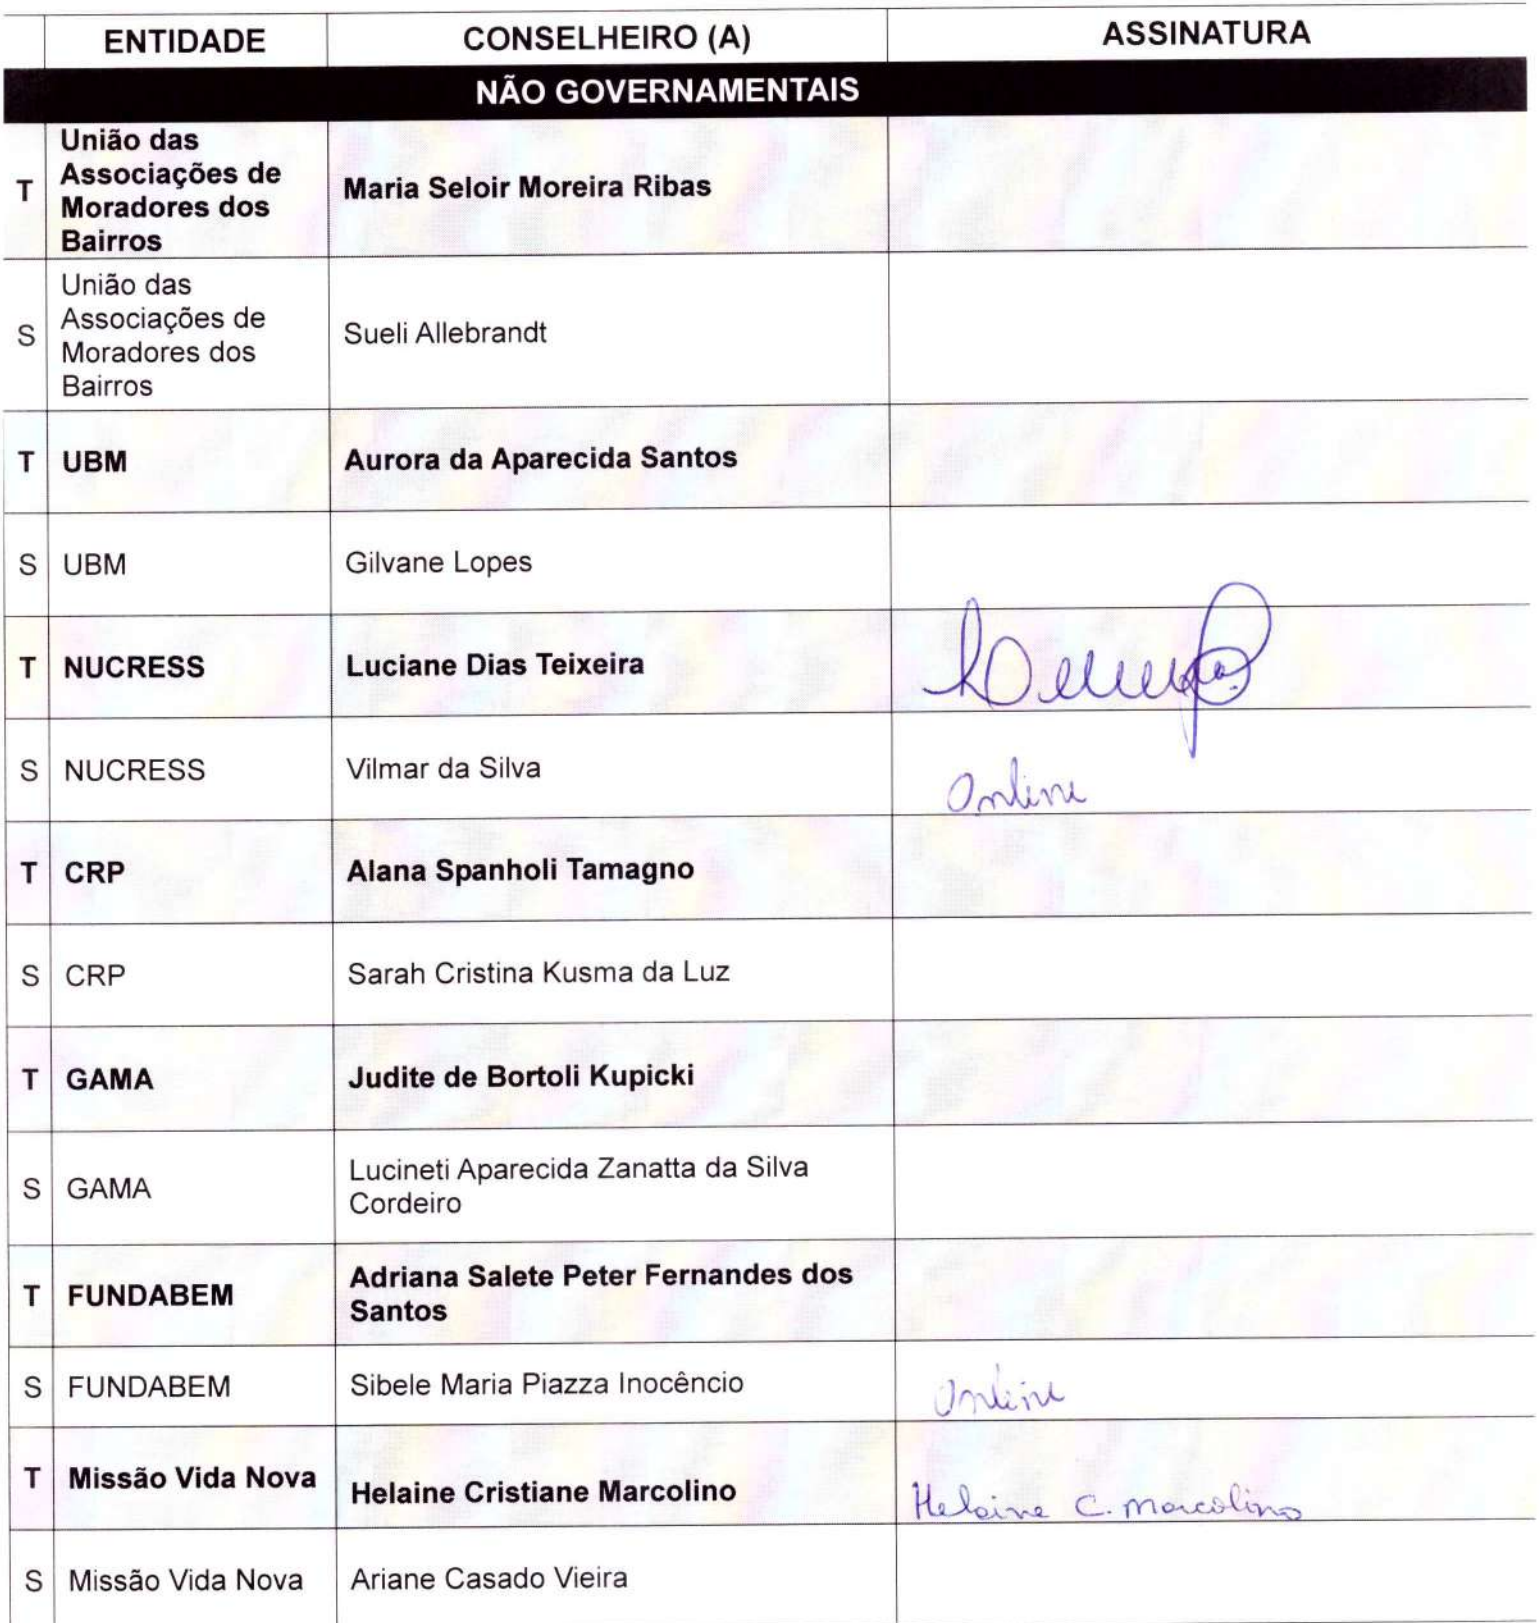 ENTIDADE CONSELHEIRO (A) ASSINATURA
NÃO GOVERNAMENTAIS
T União das Associações de Moradores dos Bairros Maria Seloir Moreira Ribas
S União das Associações de Moradores dos Bairros Sueli Allebrandt
T UBM Aurora da Aparecida Santos
S UBM Gilvane Lopes
T NUCRESS Luciane Dias Teixeira
S NUCRESS Vilmar da Silva Online
T CRP Alana Spanholi Tamagno
S CRP Sarah Cristina Kusma da Luz
T GAMA Judite de Bortoli Kupicki
S GAMA Lucineti Aparecida Zanatta da Silva Cordeiro
T FUNDABEM Adriana Salete Peter Fernandes dos Santos
S FUNDABEM Sibele Maria Piazza Inocêncio Online
T Missão Vida Nova Helaine Cristiane Marcolino Helaine C. Marcolino
S Missão Vida Nova Ariane Casado Vieira